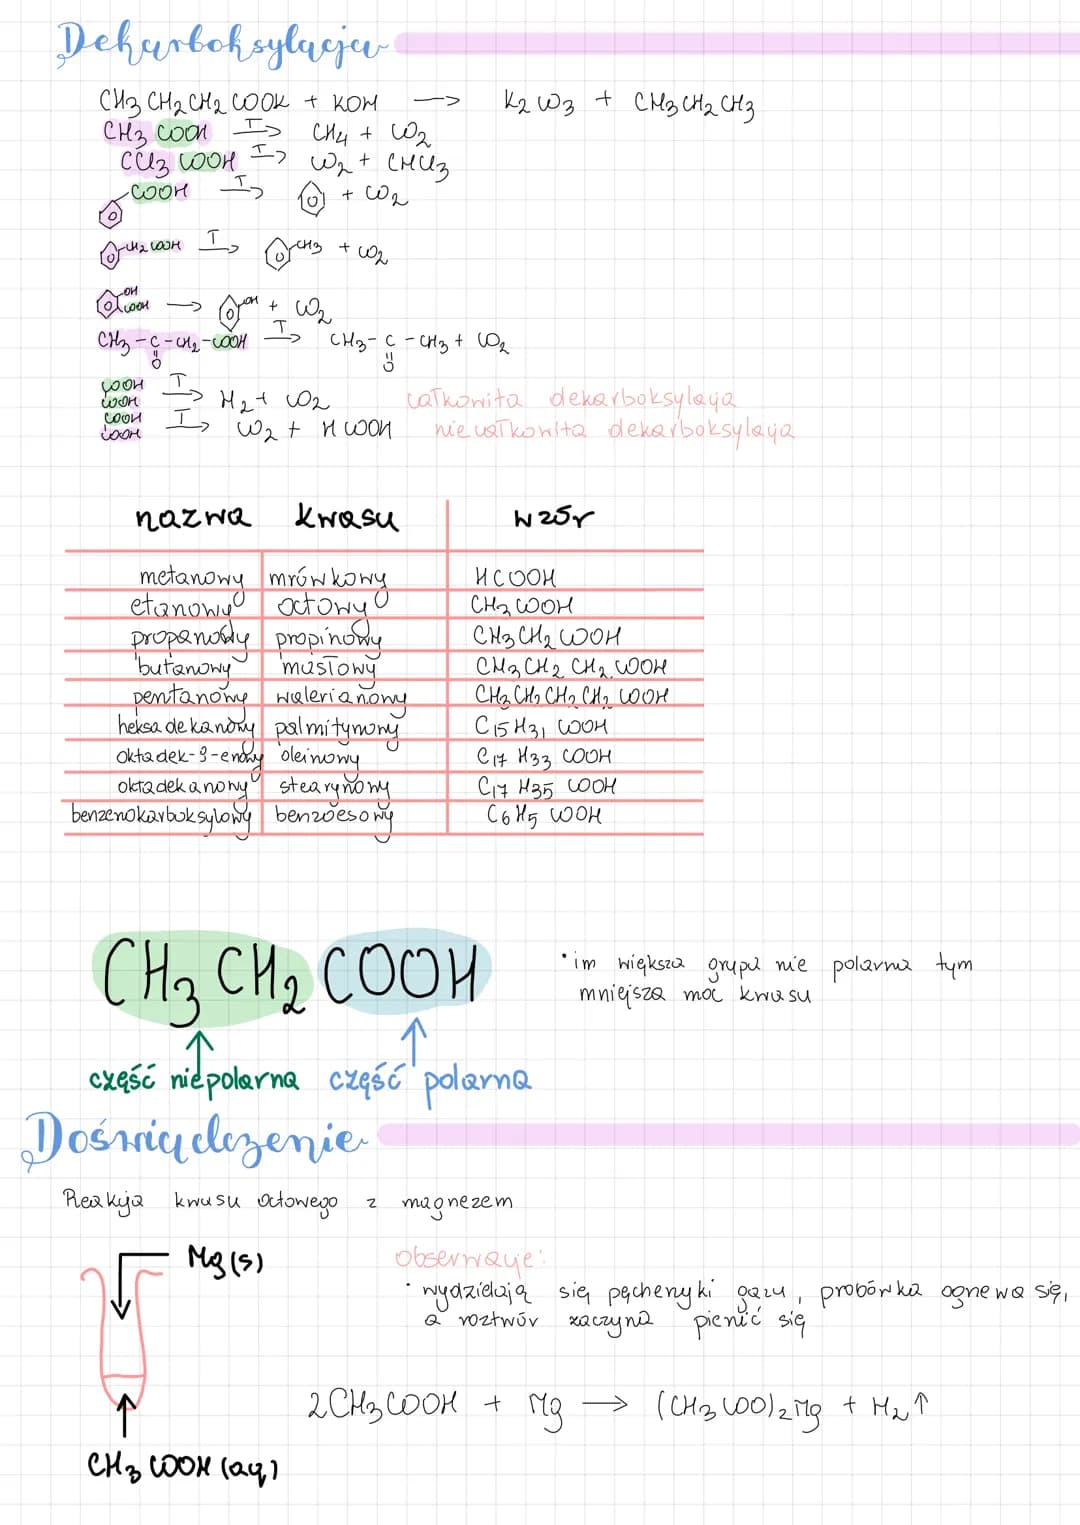 Dekarboksylacja
CH3 CH2 CH2 COOK + KOH → K2CO3 + CH3 CH2 CH3
CH3 COOH T→ CH4 + CO2
CCl3 COOH T→ CO2 + CHCl3
COOH T→ + CO2
CH2 COOH T→ CH3 + CO2
OH
COOH → OH + CO2
CH3-C-CH2-COOH T→ CH3-C-CH3 + CO2
O O
COOH T→ H2 + CO2 całkowita dekarboksylacja
COOH
COOH T→ CO2 + HCOOH niecałkowita dekarboksylacja
COOH
nazwa kwasu wzór
metanowy mrówkowy HCOOH
etanowy octowy CH3 COOH
propanowy propinowy CH3 CH2 COOH
butanowy masłowy CH3 CH2 CH2 COOH
pentanowy walerianowy CH3 CH2 CH2 CH2 COOH
heksadekanowy palmitynowy C15 H31 COOH
oktadek-9-enowy oleinowy C17 H33 COOH
oktadekanowy stearynowy C17 H35 COOH
benzenokarboksylowy benzoesowy C6H5 COOH
CH3 CH2 COOH
część niepolarna część polarna
•im większa grupa nie polarna tym
mniejsza moc kwasu
Doświadczenie
Reakcja kwasu octowego z magnezem
Mg(s)
obserwacje:
•wydzielają się pęcherzyki gazu, probówka ogrzewa się,
a roztwór zaczyna pienić się
2CH3COOH + Mg → (CH3COO)2Mg + H2↑
CH3 COOH (aq)